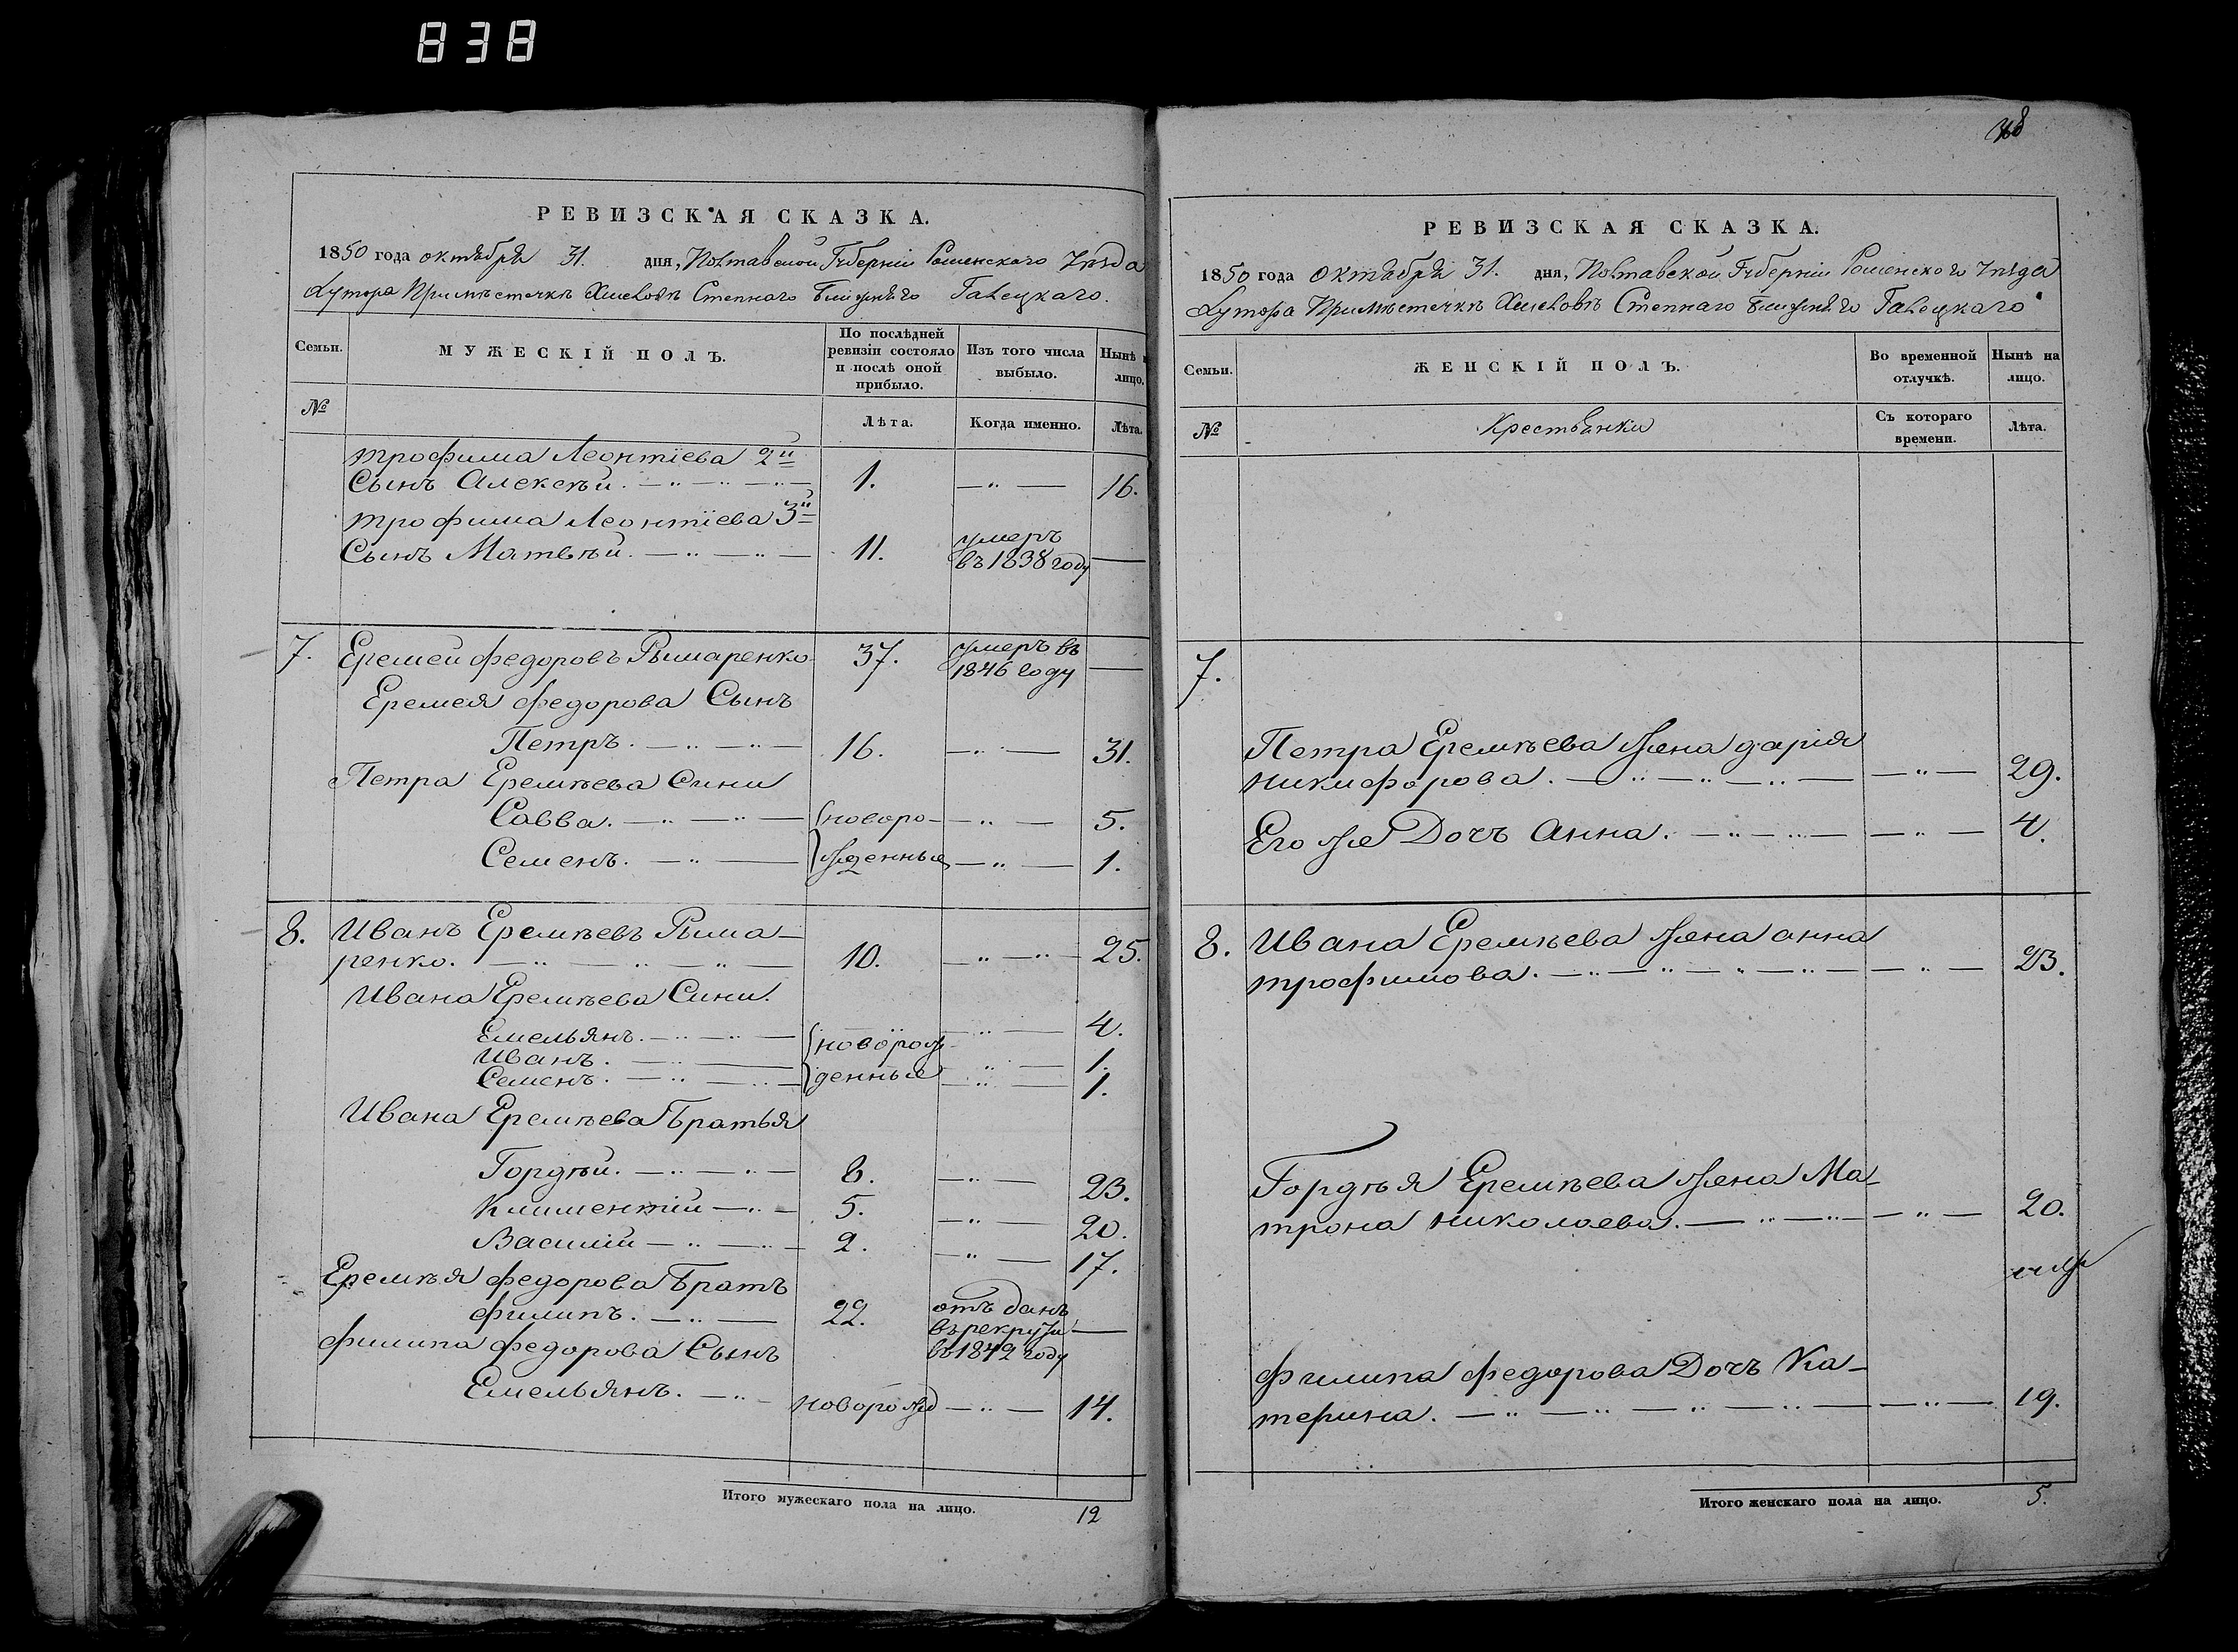 838
РЕВИЗСКАЯ СКАЗКА.
1850 года октября 31. дня, Полтавской Губерніи Роменского Уезда
Хутора Примѣстечкѣ Хмеловѣ Степнаго Ближнѣго Галецкаго.
Семьи.
МУЖЕСКІЙ ПОЛЪ.
По послѣдней ревизіи состояло и послѣ оной прибыло.
Изъ того числа выбыло.
Нынѣ н лицо.
№
Лѣта.
Когда именно.
Лѣта.
Трофима Леонтіева 2й
Сынъ Алексѣй. 1. 16.
Трофима Леонтіева 3й
Сынъ Матвѣй. 11. умеръ въ 1838 году
7. Еремей Федоровъ Рымаренко 37. умеръ въ 1846 году
Еремея Федорова Сынъ
Петръ. 16. 31.
Петра Еремѣева Сини
Савва. новоро- 5.
Семенъ. жденные 1.
8. Иванъ Еремѣевъ Рыма-
ренко. 10. 25.
Ивана Еремѣева Сини.
Емельянъ. новорож 4.
Иванъ. 1.
Семенъ. денные 1.
Ивана Еремѣева Братья
Гордѣй. 8. 23.
Климентій 5. 20.
Василій 2. 17.
Еремѣя Федорова Братъ
Филипъ. 22. отъ данъ въ рекруты въ 1842 году
Филипа Федорова Сынъ
Емельянъ. новорожд 14.
Итого мужескаго пола на лицо. 12
РЕВИЗСКАЯ СКАЗКА.
1850 года Октября 31. дня, Полтавской Губерніи Роменского Уезда
Хутора Примѣстечкѣ Хмеловѣ Степнаго Ближнѣго Галецкаго
Семьи.
ЖЕНСКІЙ ПОЛЪ.
Во временной отлучкѣ.
Нынѣ на лицо.
№
Крестьянки
Съ котораго времени.
Лѣта.
7.
Петра Еремѣева Жена Дарія
Никифорова. 29.
Его же Дочъ Анна. 4.
8. Ивана Еремѣева Жена Анна
Трофимова. 23.
Гордѣя Еремѣева Жена Ма-
трона Николаева. 20.
Филипа Федорова Дочъ Ка-
терина. 19.
Итого женскаго пола на лицо. 5.